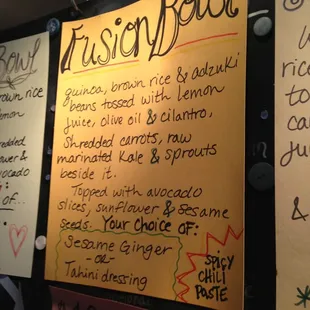 Bowl
own rice
mon
redded
ower &
vocado
of...
Fusion Bowl
quinoa, brown rice & adzuki
beans tossed with lemon
juice, olive oil & cilantro,
shredded carrots, raw
marinated Kale & sprouts
beside it.
Topped with avocado
slices, sunflower & sesame
seeds. Your choice of:
Sesame Ginger
-OR-
Tahini dressing
SPICY
CHILI
PASTE
rice
to
ca
ju
&